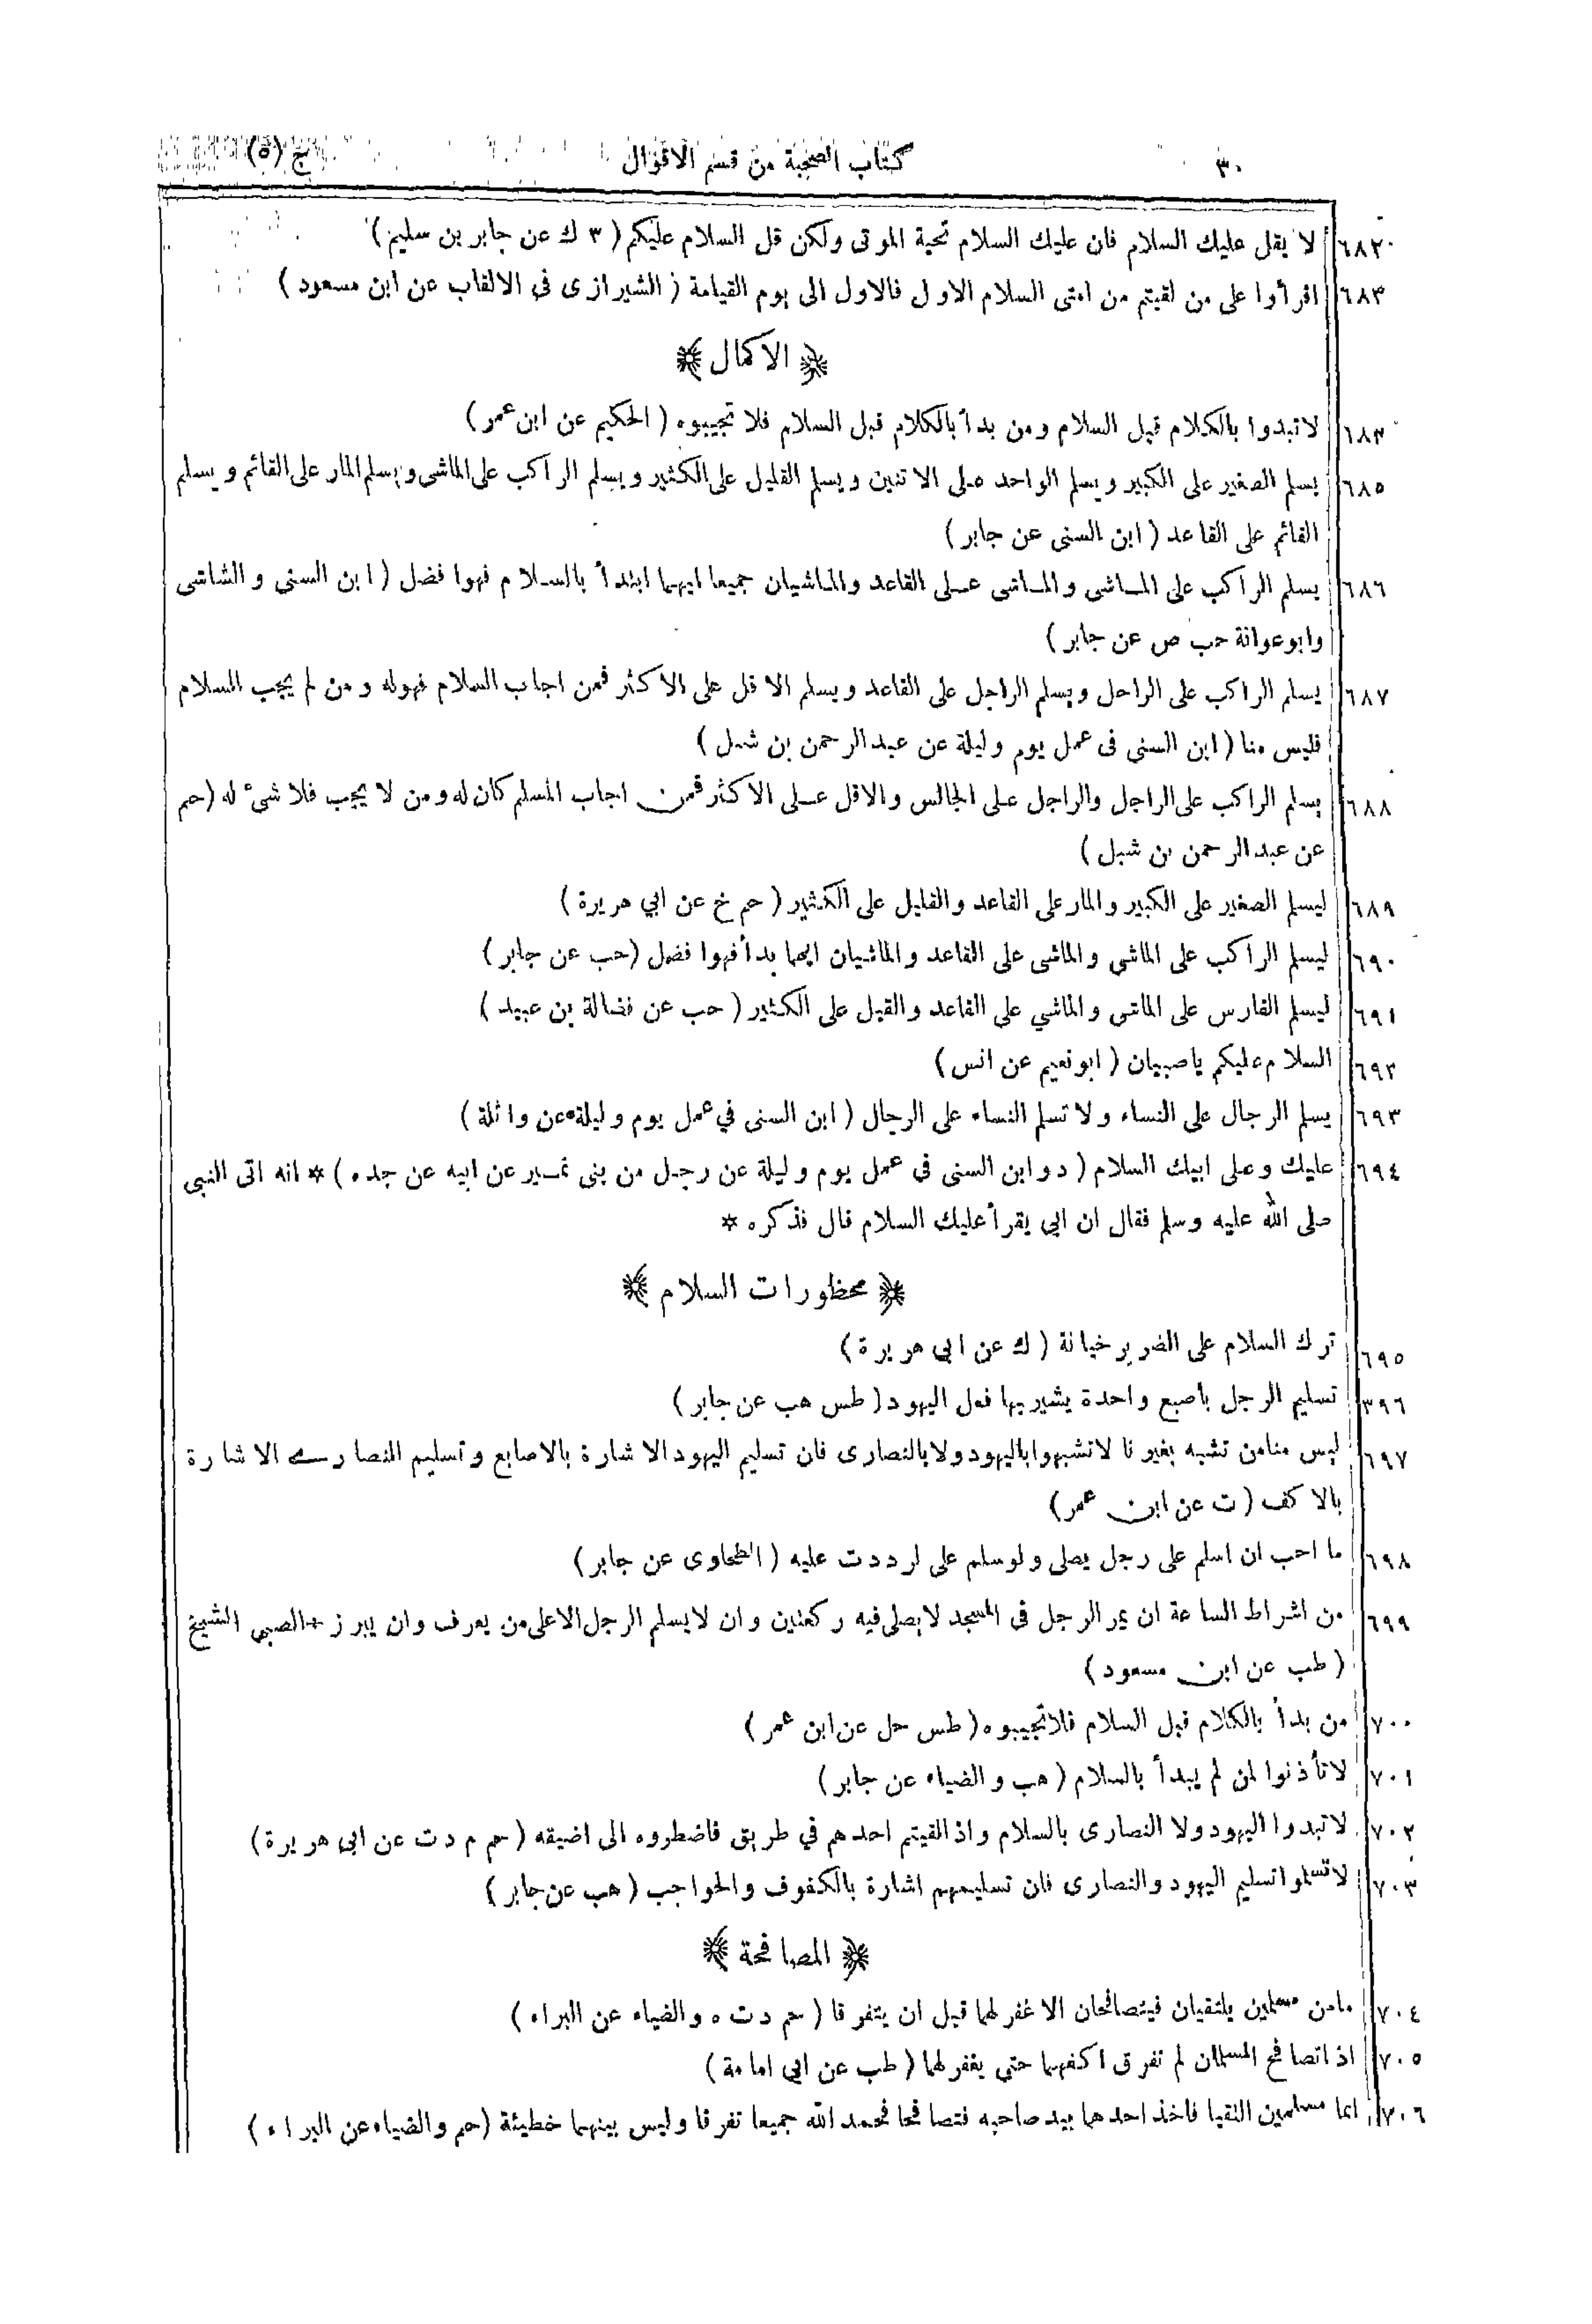 ٣٠ كتاب الصحبة من قسم الاقوال ج (٥)
٦٨٢ لا يقل عليك السلام فان عليك السلام تحية الموتى ولكن قل السلام عليكم (٣ ك عن جابر بن سليم)
٦٨٣ اقرأوا على من لقيتم من امتى السلام الاول فالاول الى يوم القيامة (الشيرازى فى الالقاب عن ابن مسعود)
﴿ الاكمال ﴾
٦٨٣ لا تبدوا بالكلام قبل السلام ومن بدأ بالكلام قبل السلام فلا تجيبوه (الحكيم عن ابن عمر)
٦٨٥ يسلم الصغير على الكبير ويسلم الواحد على الاثنين ويسلم القليل على الكثير ويسلم الراكب على الماشى ويسلم المار على القائم ويسلم
القائم على القاعد (ابن السنى عن جابر)
٦٨٦ يسلم الراكب على الماشى والماشى على القاعد والماشيان جميعا ايهما ابتدأ بالسلام فهوا فضل (ابن السنى و الشاشى
وابوعوانة حب ص عن جابر)
٦٨٧ يسلم الراكب على الراحل ويسلم الراجل على القاعد ويسلم الاقل على الاكثر فمن اجاب السلام فهوله ومن لم يجب السلام
فليس منا (ابن السنى فى عمل يوم وليلة عن عبدالرحمن بن شبل)
٦٨٨ يسلم الراكب على الراجل والراجل على الجالس والاقل على الاكثر فمن اجاب المسلم كان له ومن لا يجب فلا شىء له (حم
عن عبدالرحمن بن شبل)
٦٨٩ ليسلم الصغير على الكبير والمار على القاعد والقليل على الكثير (حم خ عن ابي هريرة)
٦٩٠ ليسلم الراكب على الماشي والماشى على القاعد والماشيان ايهما بدأ فهوا فضل (حب عن جابر)
٦٩١ ليسلم الفارس على الماشى والماشي على القاعد والقيل على الكثير (حب عن فضالة بن عبيد)
٦٩٢ السلام عليكم ياصبيان (ابونعيم عن انس)
٦٩٣ يسلم الرجال على النساء ولا تسلم النساء على الرجال (ابن السنى في عمل يوم وليلة عن واثلة)
٦٩٤ عليك وعلى ابيك السلام (د وابن السنى فى عمل يوم وليلة عن رجل من بنى نمير عن ابيه عن جده) * انه اتى النبى
صلى الله عليه وسلم فقال ان ابى يقرأ عليك السلام قال فذكره *
﴿ محظورات السلام ﴾
٦٩٥ ترك السلام على الضرير خيانة (ك عن ابى هريرة)
٣٩٦ تسليم الرجل باصبع واحدة يشير بها فعل اليهود (طس هب عن جابر)
٦٩٧ ليس منامن تشبه بغيرنا لا تشبهوا باليهود ولا بالنصارى فان تسليم اليهود الاشارة بالاصابع وتسليم النصارى الاشارة
بالاكف (ت عن ابن عمر)
٦٩٨ ما احب ان اسلم على رجل يصلى ولوسلم على لرددت عليه (الطحاوى عن جابر)
٦٩٩ من اشراط الساعة ان يمر الرجل فى المسجد لا يصلى فيه ركعتين وان لايسلم الرجل الاعلى من يعرف وان يبرز+الصبى الشيخ
(طب عن ابن مسعود)
٧٠٠ من بدأ بالكلام قبل السلام فلا تجيبوه (طس حل عن ابن عمر)
٧٠١ لا تأذنوا لمن لم يبدأ بالسلام (هب والضياء عن جابر)
٧٠٢ لا تبدوا اليهود ولا النصارى بالسلام واذ القيتم احدهم في طريق فاضطروه الى اضيقه (حم م د ت عن ابى هريرة)
٧٠٣ لا تسلموا تسليم اليهود والنصارى فان تسليمهم اشارة بالكفوف والحواجب (هب عن جابر)
﴿ المصافحة ﴾
٧٠٤ مامن مسلمين يلتقيان فيتصافحان الا غفر لهما قبل ان يتفرقا (حم د ت ه والضياء عن البراء)
٧٠٥ اذاتصافح المسلمان لم تفرق اكفهما حتى يغفر لهما (طب عن ابى امامة)
٧٠٦ ايما مسلمين التقيا فاخذ احدهما بيد صاحبه فتصافحا فحمد الله جميعا تفرقا وليس بينهما خطيئة (حم والضياء عن البراء)